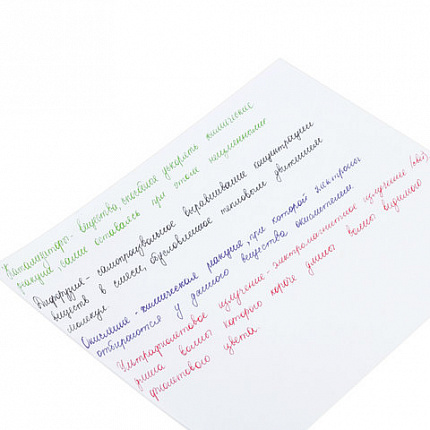 Катализаторы - вещества, способные ускорять химические
реакции, сами оставаясь при этом неизменными
Диффузия - самопроизвольное выравнивание концентрации
веществ в смеси, обусловленное тепловым движением
молекул
Окисление - химическая реакция, при которой электроны
отбираются у данного вещества окислителем
Ультрафиолетовое излучение - электромагнитное излучение (свет),
длина волны которого короче длины волны видимого
фиолетового цвета